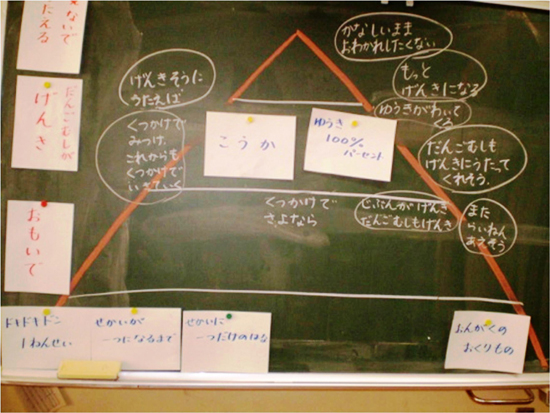 えないで
たえる
だんごむしが
げんき
おもいで
げんきそうに
うたえば
くつかけで
みつけ
これからも
くつかけで
かなしいまま
おわかれしたくない
もっと
げんきになる
ゆうきがわいて
くる
こうか
ゆうき
100%
パーセント
だんごむしも
げんきにうたって
くれそう。
くつかけで
さよなら
じぶんがげんき
だんごむしもげんき
また
らいねん
あえそう
ドキドキドン
1ねんせい
せかいが
一つになるまで
せかいに
一つだけのはな
おんがくの
おくりもの